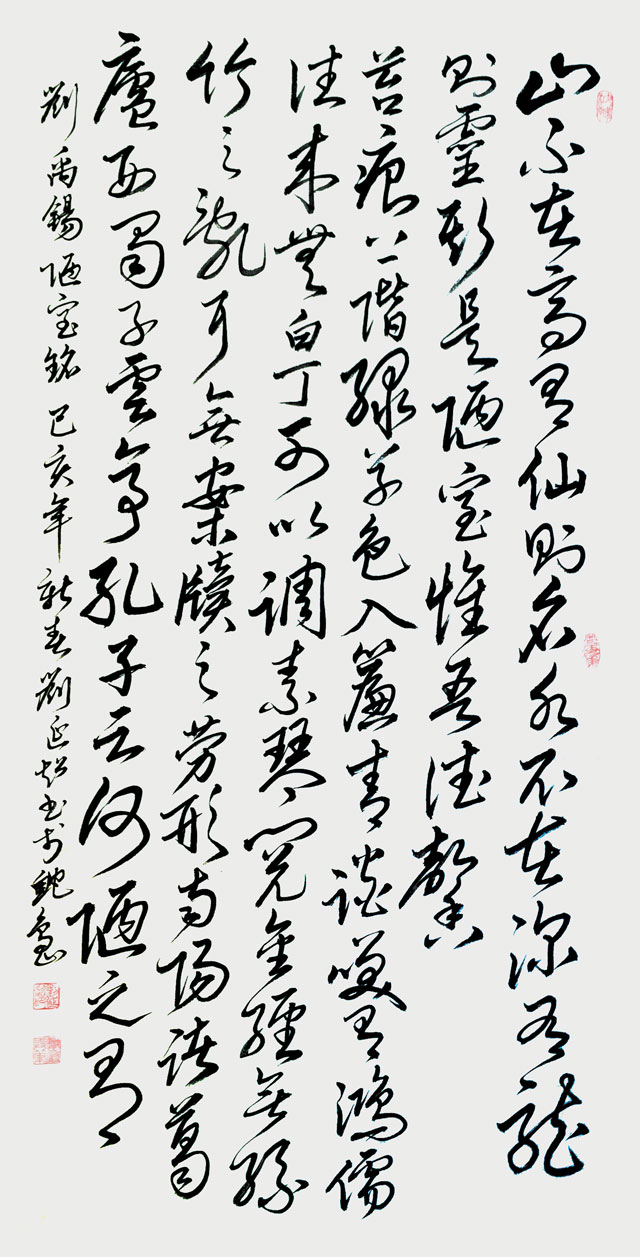 山不在高有仙則名水不在深有龍
則靈斯是陋室惟吾德馨
苔痕上階緑草色入簾青談笑有鴻儒
往來無白丁可以調素琴閱金經無絲
竹之亂耳無案牘之勞形南陽諸葛
廬西蜀子雲亭孔子云何陋之有
劉禹錫陋室銘 己亥年新春劉延超書於